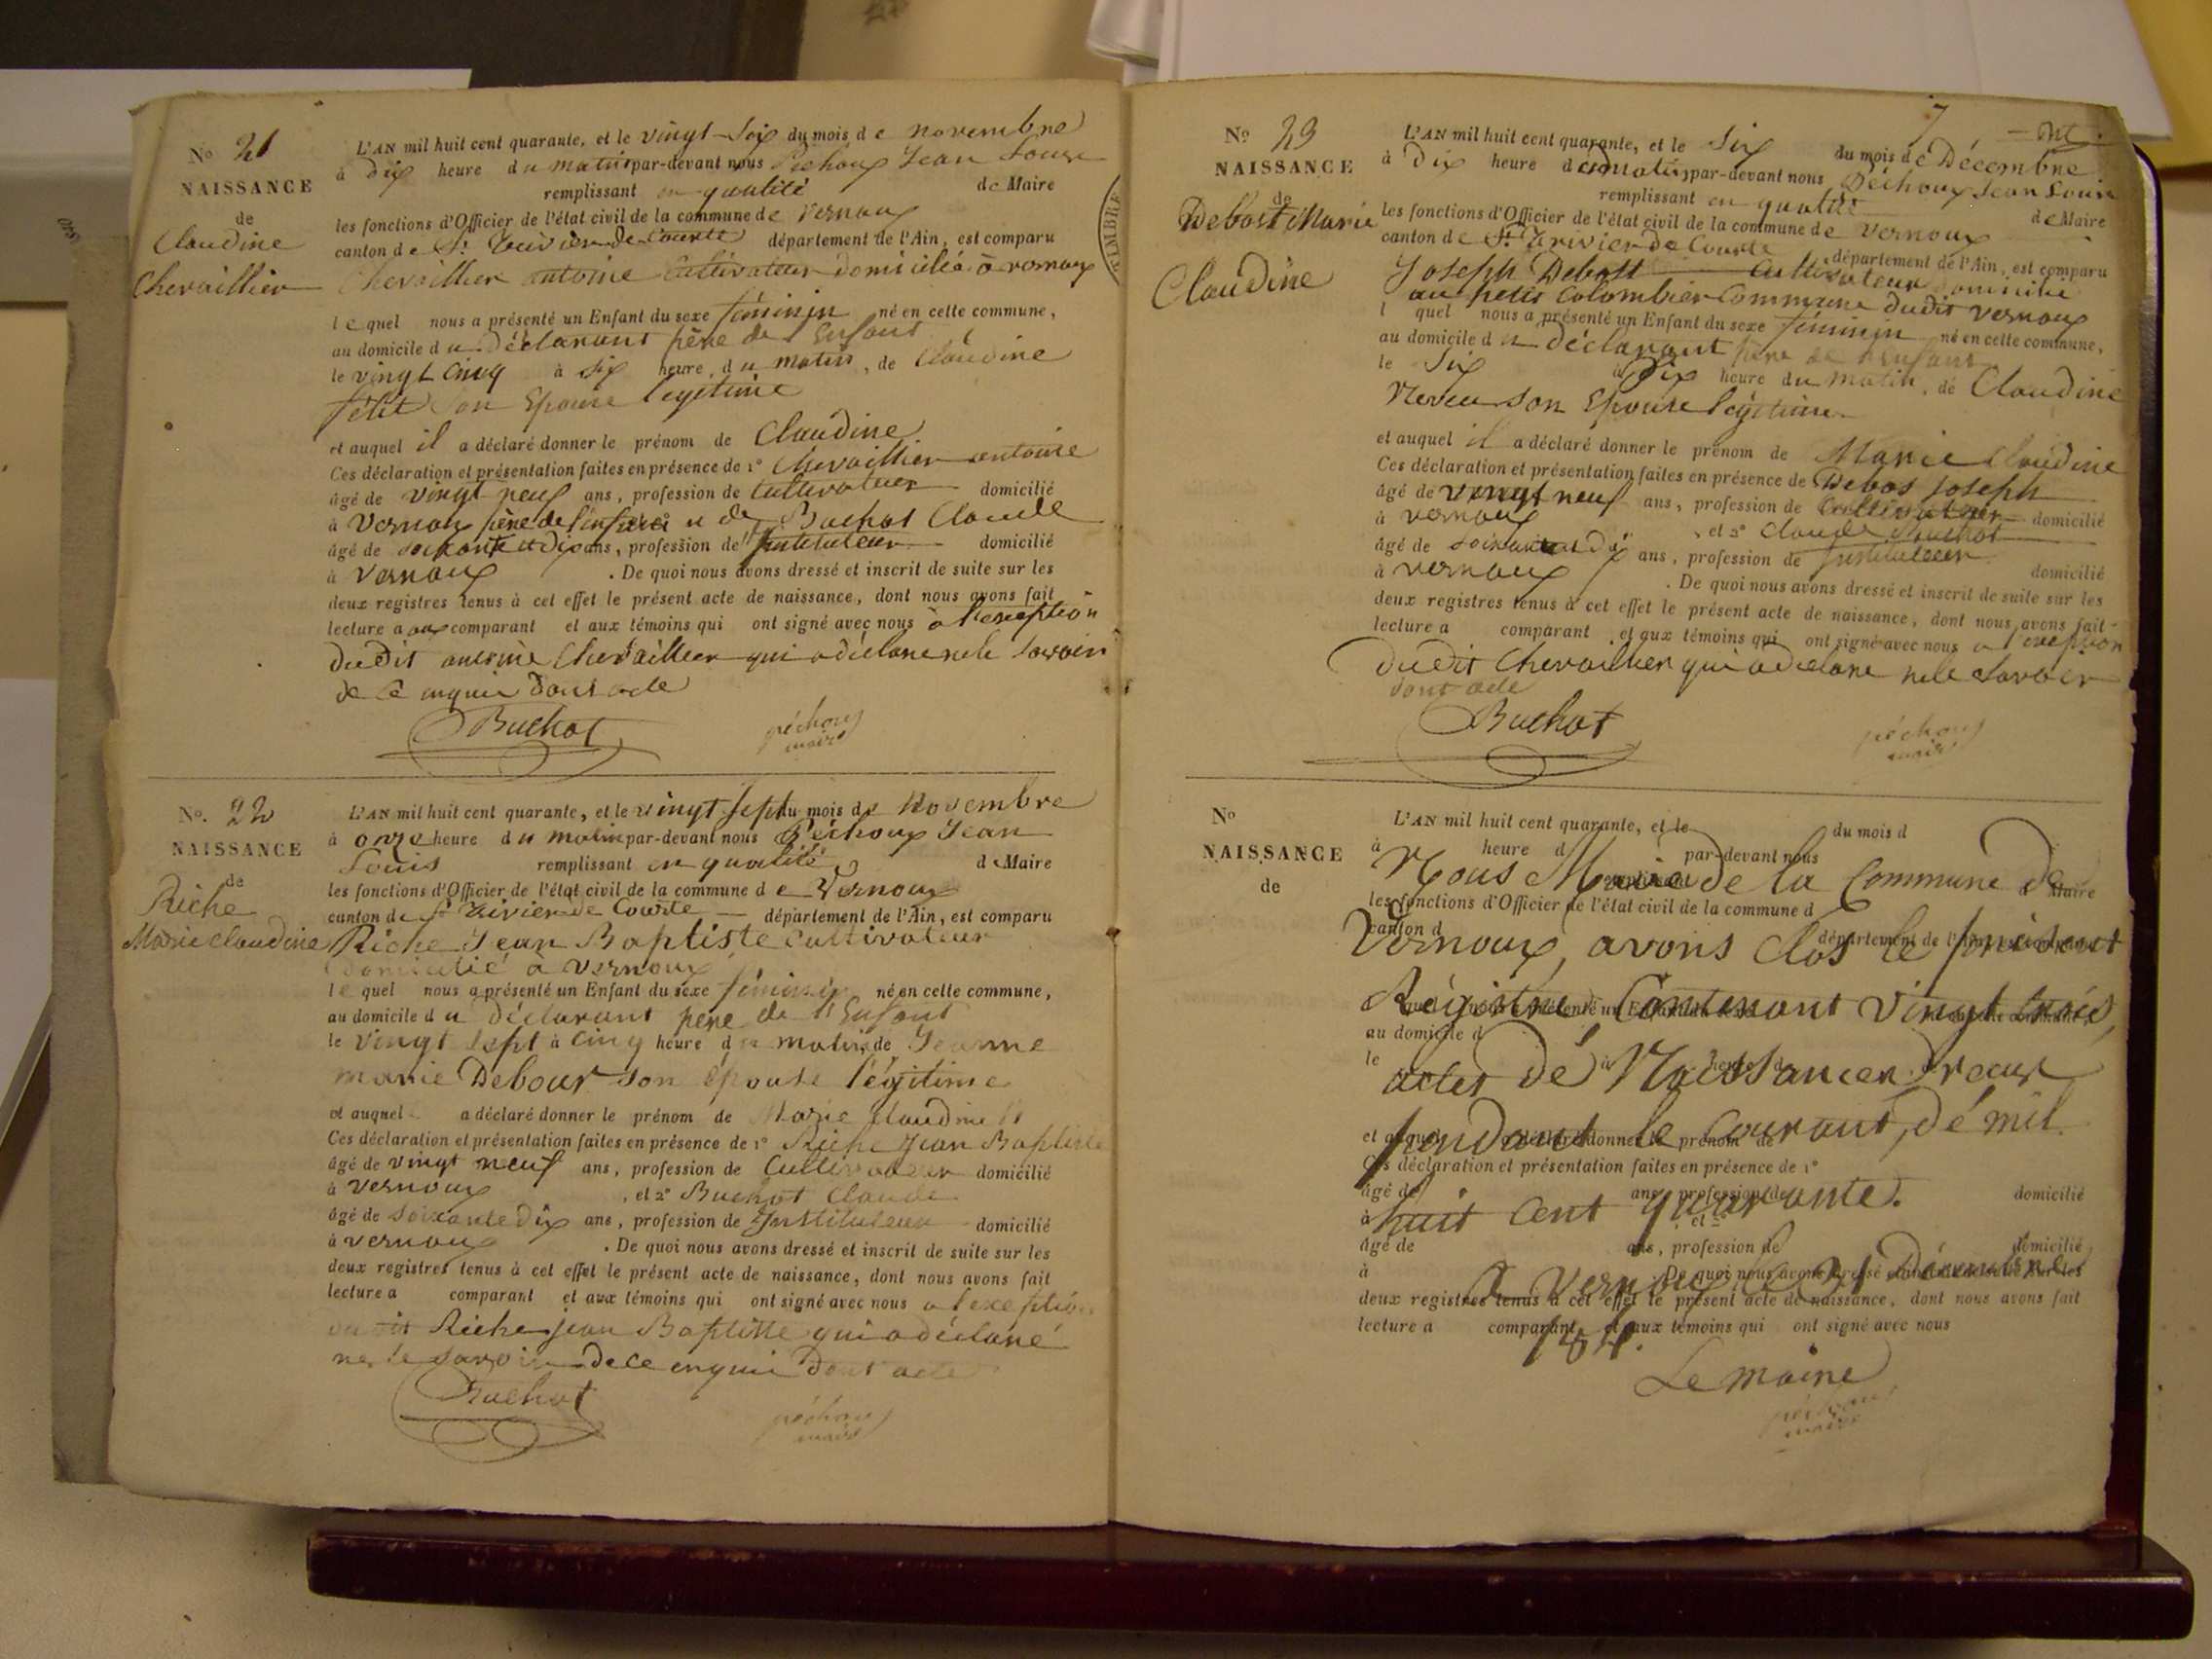 No 21
NAISSANCE
de
Claudine
Chevaillier
L'AN mil huit cent quarante, et le vingt-six du mois de novembre
à dix heure du matin par-devant nous Péchoux Jean Louis
remplissant en qualité de Maire
les fonctions d'Officier de l'état civil de la commune de vernoux
canton de St Trivier de Courte département de l'Ain, est comparu
Chevaillier antoine Cultivateur domicilié à vernoux
lequel nous a présenté un Enfant du sexe féminin né en cette commune,
au domicile du Déclarant père de l'Enfant
le vingt cinq à six heure, du matin, de Claudine
son Epouse légitime
et auquel il a déclaré donner le prénom de Claudine
Ces déclaration et présentation faites en présence de 1º Chevaillier antoine
âgé de vingt neuf ans, profession de Cultivateur domicilié
à Vernoux père de l'enfant et de Buchot Claude
âgé de soixante et dix ans, profession de Instituteur domicilié
à Vernoux . De quoi nous avons dressé et inscrit de suite sur les
deux registres tenus à cet effet le présent acte de naissance, dont nous avons fait
lecture a aux comparant et aux témoins qui ont signé avec nous à l'exception
dudit antoine Chevaillier qui a déclaré ne le savoir
de ce enquis dont acte
Buchot
péchoux
maire
No. 22
NAISSANCE
de
Riche
Marie Claudine
L'AN mil huit cent quarante, et le vingt sept du mois de Novembre
à onze heure du matin par-devant nous Péchoux Jean
Louis remplissant en qualité de Maire
les fonctions d'Officier de l'état civil de la commune de Vernoux
canton de St Trivier de Courte département de l'Ain, est comparu
Riche Jean Baptiste Cultivateur
domicilié à vernoux
lequel nous a présenté un Enfant du sexe féminin né en cette commune,
au domicile du déclarant père de l'Enfant
le vingt sept à cinq heure du matin, de Jeanne
marie Debour son épouse légitime
et auquel a déclaré donner le prénom de Marie Claudine
Ces déclaration et présentation faites en présence de 1º Riche Jean Baptiste
âgé de vingt neuf ans, profession de Cultivateur domicilié
à vernoux , et 2º Buchot Claude
âgé de soixante dix ans, profession de Instituteur domicilié
à vernoux . De quoi nous avons dressé et inscrit de suite sur les
deux registres tenus à cet effet le présent acte de naissance, dont nous avons fait
lecture a comparant et aux témoins qui ont signé avec nous a l'exeption
dudit Riche jean Baptiste qui a déclaré
ne le savoir de ce enquis dont acte
Buchot
péchoux
maire
7
No 23
NAISSANCE
de
Debost Marie
Claudine
L'AN mil huit cent quarante, et le six du mois de Décembre
à Dix heure du matin par-devant nous Péchoux Jean Louis
remplissant en qualité de Maire
les fonctions d'Officier de l'état civil de la commune de vernoux
canton de St Trivier de Courte département de l'Ain, est comparu
Joseph Debost Cultivateur domicilié
au petit Colombier Commune dudit vernoux
l quel nous a présenté un Enfant du sexe féminin né en cette commune,
au domicile du déclarant père de l'enfant
le six à Dix heure du matin, de Claudine
son Epouse légitime
et auquel il a déclaré donner le prénom de Marie Claudine
Ces déclaration et présentation faites en présence de Debos Joseph
âgé de vingt neuf ans, profession de Cultivateur domicilié
à vernoux , et 2º Claude Buchot
âgé de soixante et dix ans, profession de Instituteur domicilié
à vernoux . De quoi nous avons dressé et inscrit de suite sur les
deux registres tenus à cet effet le présent acte de naissance, dont nous avons fait
lecture a comparant et aux témoins qui ont signé avec nous a l'exeption
dudit Chevaillier qui a déclaré ne le savoir
dont acte
Buchot
péchoux
maire
No
NAISSANCE
de
L'AN mil huit cent quarante, et le du mois d
à heure d par-devant nous
Nous Maire de la Commune de
Maire
les fonctions d'Officier de l'état civil de la commune d
canton d département de l'Ain, est comparu
Vernoux, avons Clos le présent
Régistre Contenant vingt trois
au domicile d
le à heure d
actes de Naissances reçus
pendant le Courant, de mil
et auquel a déclaré donner le prénom de
Ces déclaration et présentation faites en présence de 1º
âgé de ans, profession de domicilié
huit Cent quarante.
à et 2º
âgé de ans, profession de domicilié
à De quoi nous avons dressé et inscrit de suite sur les
A Vernoux le 31 Décembre
deux registres tenus à cet effet le présent acte de naissance, dont nous avons fait
lecture a comparant et aux témoins qui ont signé avec nous
Le maire
péchoux
maire